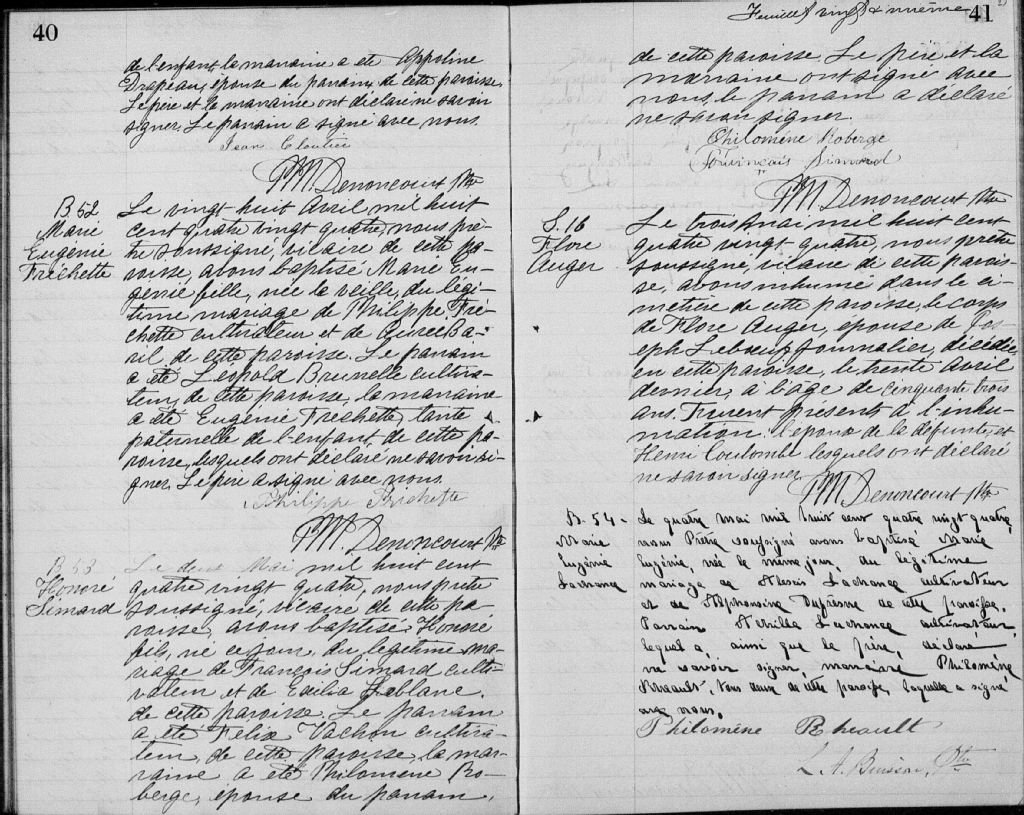 40
de l'enfant la marraine a été Appoline
Drapeau, épouse du parrain, de cette paroisse.
Le père et la marraine ont déclaré ne savoir
signer. Le parrain a signé avec nous.
Jean Cloutier
Denoncourt Ptre
B. 52
Marie
Eugénie
Fréchette
Le vingt huit Avril mil huit
cent quatre vingt quatre, nous prê-
tre soussigné, vicaire de cette pa-
roisse, avons baptisé Marie Eu-
génie fille, née la veille, du légi-
time mariage de Philippe Fré-
chette cultivateur et de
de cette paroisse. Le parrain
a été Léopold Brunelle cultiva-
teur, de cette paroisse, la marraine
a été Eugénie Frechette, tante
paternelle de l'enfant, de cette pa-
roisse, lesquels ont déclaré ne savoir si-
gner. Le père a signé avec nous.
Philippe Frechette
Denoncourt Ptre
B. 53
Honoré
Simard
Le deux Mai mil huit cent
quatre vingt quatre, nous prêtre
soussigné, vicaire de cette pa-
roisse, avons baptisé Honoré
fils, né ce jour du légitime ma-
riage de François Simard culti-
vateur et de Exélia Leblanc,
de cette paroisse. Le parrain
a été Felix Vachon cultiva-
teur, de cette paroisse, la mar-
raine a été Philomène Ro-
berge, épouse du parrain,
Feuillet vingt & unième
41
de cette paroisse. Le père et la
marraine ont signé avec
nous, le parrain a déclaré
ne savoir signer.
Philomène Roberge
Simard
Denoncourt Ptre
S. 16
Flore
Auger
Le trois mai mil huit cent
quatre vingt-quatre, nous prêtre
soussigné, vicaire de cette parois-
se, avons inhumé dans le ci-
metière de cette paroisse, le corps
de Flore Auger, épouse de Jos-
eph Leboeuf Journalier, décédée
en cette paroisse, le trente Avril
dernier, à l'âge de cinquante trois
ans. Furent présents à l'inhu-
mation: l'époux de la défunte, et
Henri Coulombe lesquels ont déclaré
ne savoir signer
Denoncourt Ptre
B. 54 -
Marie
Eugénie
Lachance
Le quatre mai mil huit cent quatre vingt quatre,
nous Prêtre soussigné avons baptisé Marie
Eugénie, née le même jour, du légitime
mariage de Alexis Lachance cultivateur
et de Alphonsine Dufresne de cette paroisse.
Parrain Achille Lachance cultivateur,
lequel a, ainsi que le père, déclaré
ne savoir signer, marraine Philomène
Rheault, tous deux de cette paroisse, laquelle a signé
avec nous.
Philomène Rheault
L. A. Buisson, Ptre